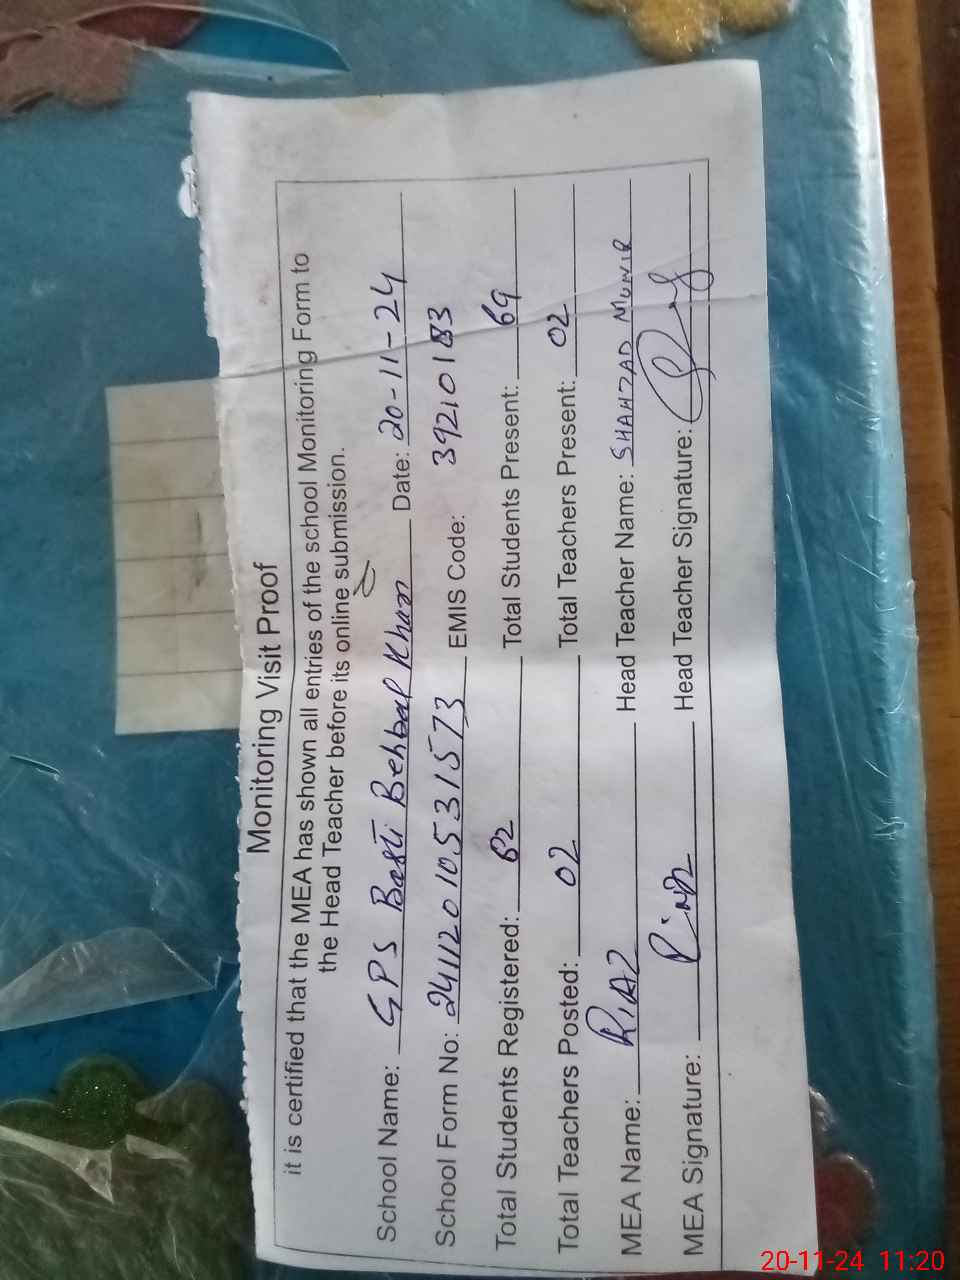 Monitoring Visit Proof
it is certified that the MEA has shown all entries of the school Monitoring Form to
the Head Teacher before its online submission.
School Name: GPS Basti Behbal Khan Date: 20-11-24
School Form No: 24112010531573 EMIS Code: 39210183
Total Students Registered: 82 Total Students Present: 69
Total Teachers Posted: 02 Total Teachers Present: 02
MEA Name: RIAZ Head Teacher Name: SHAHZAD MUNIR
MEA Signature: Head Teacher Signature:
20-11-24 11:20